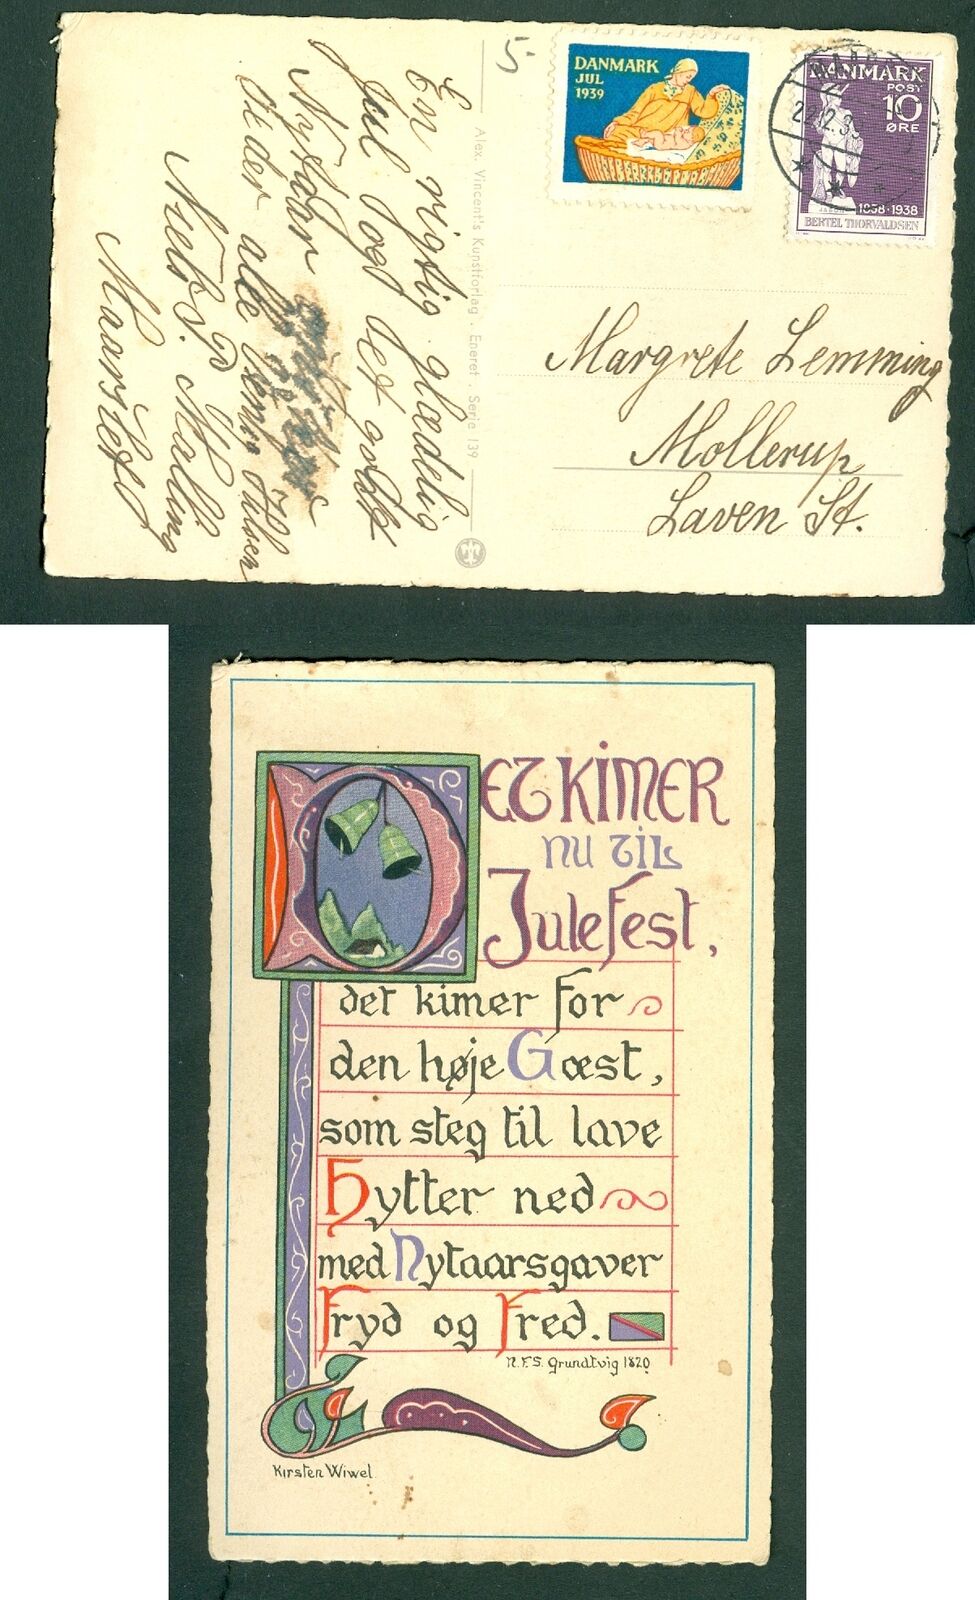 5-
DANMARK
JUL
1939
DANMARK
POST
10
ØRE
1838 · 1938
BERTEL THORVALDSEN
Alex. Vincent's Kunstforlag . Eneret Serie 139
En rigtig glædelig
Jul og et godt
Nytaar
alle
Niels P. Malling
Maarslet
Margrete Lemming
Mollerup
Laven St.
DET KIMER
NU TIL
JULEFEST,
det kimer for
den høje Gæst,
som steg til lave
Hytter ned
med Nytaarsgaver
Fryd og Fred.
N.F.S. Grundtvig 1820
Kirsten Wiwel.